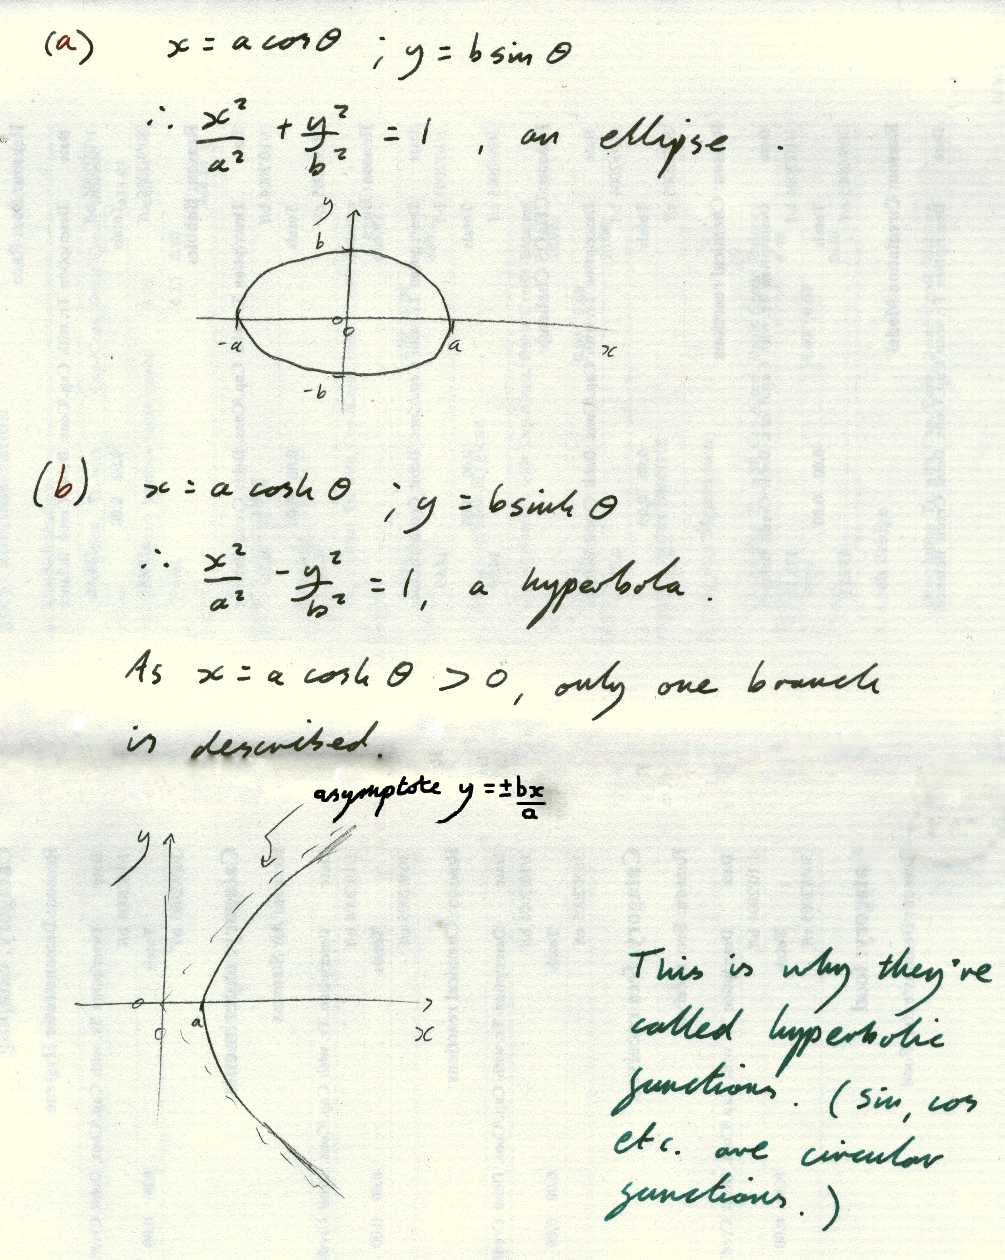 (a) x = a cos θ ; y = b sin θ
∴ x²/a² + y²/b² = 1 , an ellipse .
y
b
0
0
-a
a
x
-b
(b) x = a cosh θ ; y = b sinh θ
∴ x²/a² - y²/b² = 1, a hyperbola .
As x = a cosh θ > 0, only one branch
is described.
asymptote y = ± bx/a
y
0
0
a
x
This is why they're
called hyperbolic
functions. (sin, cos
etc. are circular
functions.)